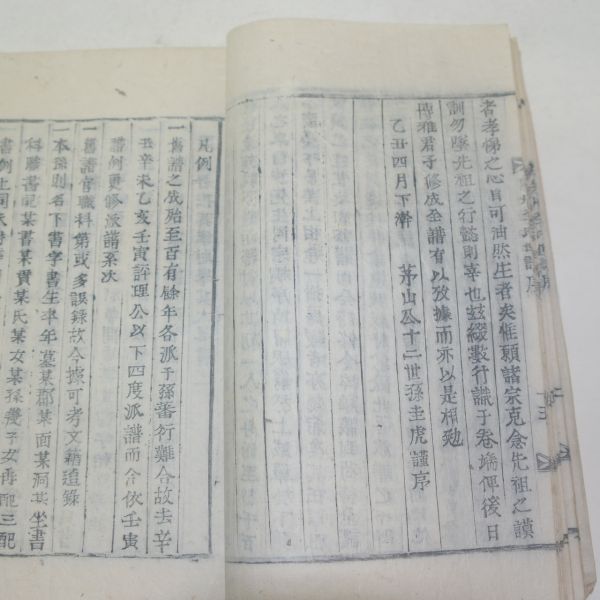 者孝悌之心自可油然生者矣惟願諸宗克念先祖之謨
訓勿墜先祖之行懿則幸也玆綴數行識于卷端俾後日
博雅君子修成全譜有以攷據而亦以是相勉
乙丑四月下澣 茅山公十二世孫圭虎謹序
凡例
一舊譜之成殆至百有餘年各派子孫蕃衍難合故去辛
丑辛未乙亥壬寅評理公以下四度派譜而合依壬寅
譜例更修派譜系次
一舊譜官職科第或多誤錄故今據可考文籍追錄
一本孫則名下書字書生卒年墓某郡某面某洞某坐書
科職書配某書某貫某氏某女某孫幾子女再配三配